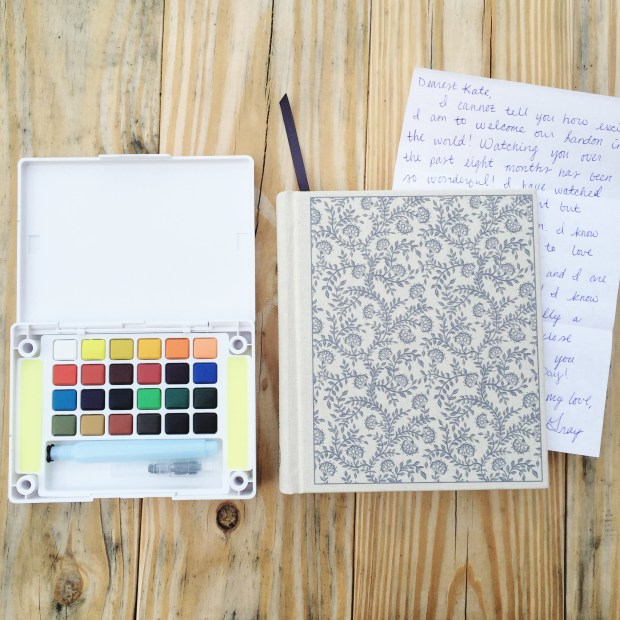 Dearest Kate,
I cannot tell you how
I am to welcome our Landon in
the world! Watching you over
the past eight months has been
so wonderful! I have watched
but
I know
to love
and I are
I know
a
close
you
Day!
my love,
Gray